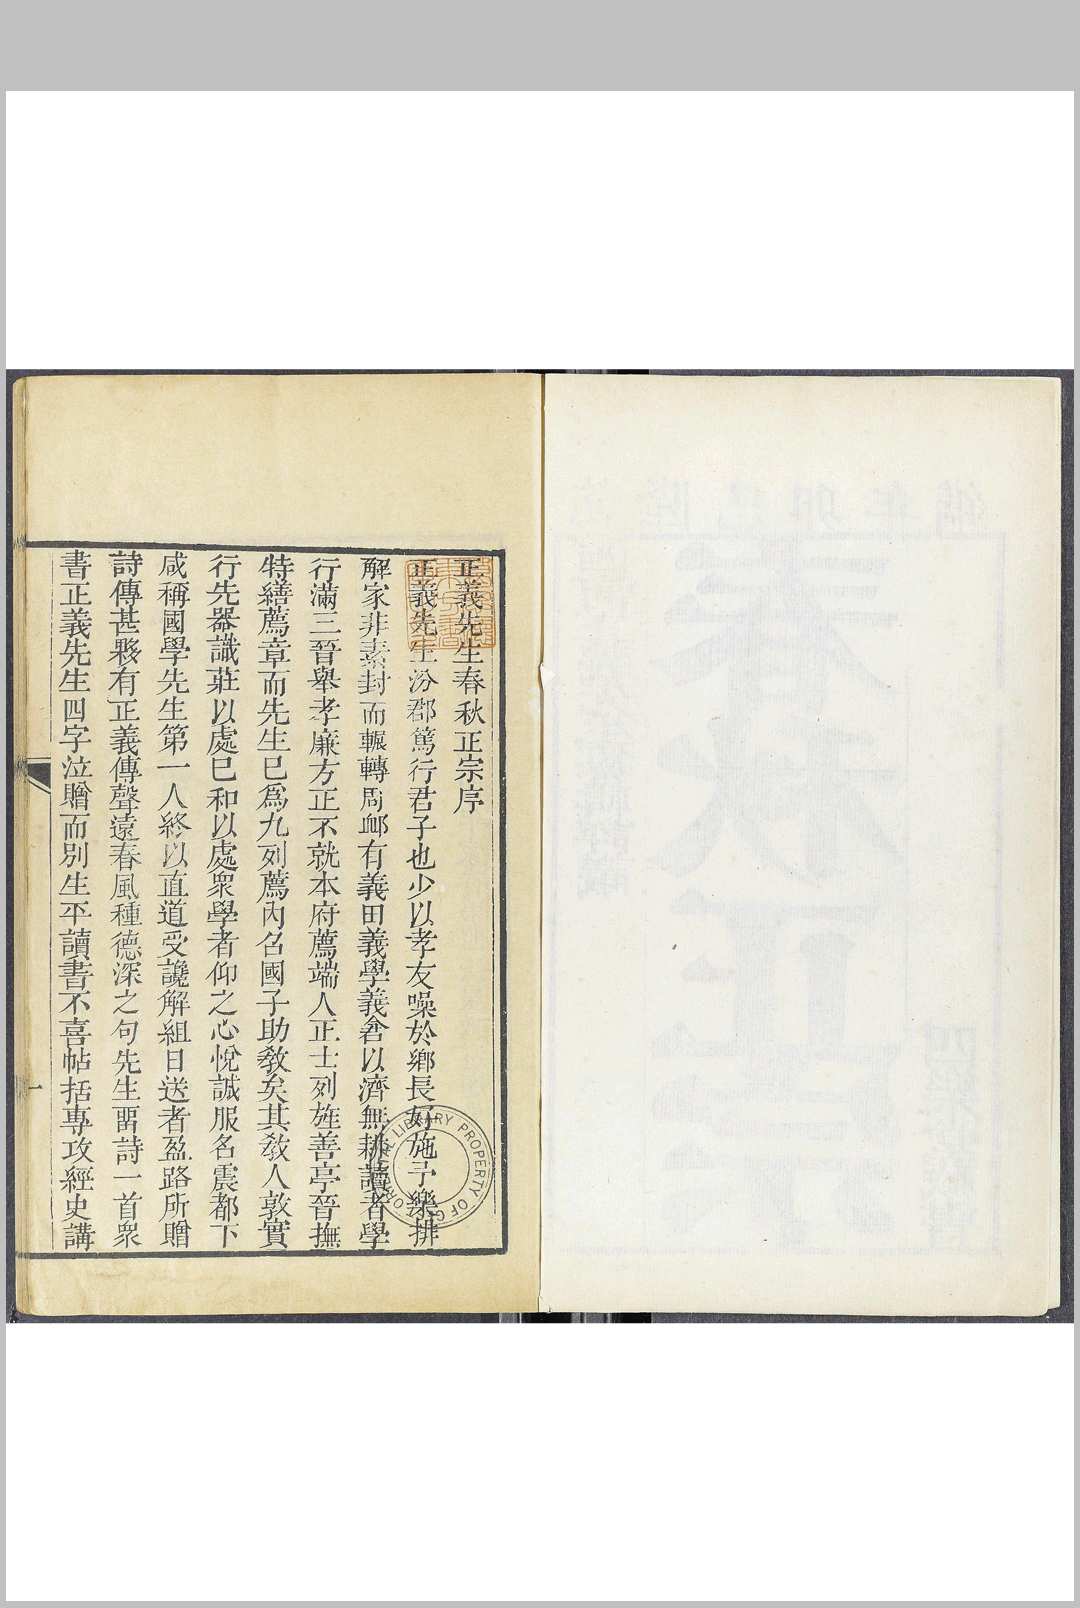 正義先生春秋正宗序
正義先生汾郡篤行君子也少以孝友噪於鄉長好施予樂排
解家非素封而輾轉周卹有義田義學義倉以濟無耕讀者學
行滿三晉舉孝廉方正不就本府薦端人正士列旌善亭晉撫
特繕薦章而先生已為九列薦內召國子助教矣其教人敦實
行先器識莊以處已和以處眾學者仰之心悅誠服名震都下
咸稱國學先生第一人終以直道受讒解組日送者盈路所贈
詩傳甚夥有正義傳聲遠春風種德深之句先生畱詩一首眾
書正義先生四字泣贈而別生平讀書不喜帖括專攻經史講
一
LIBRARY PROPERTY OF